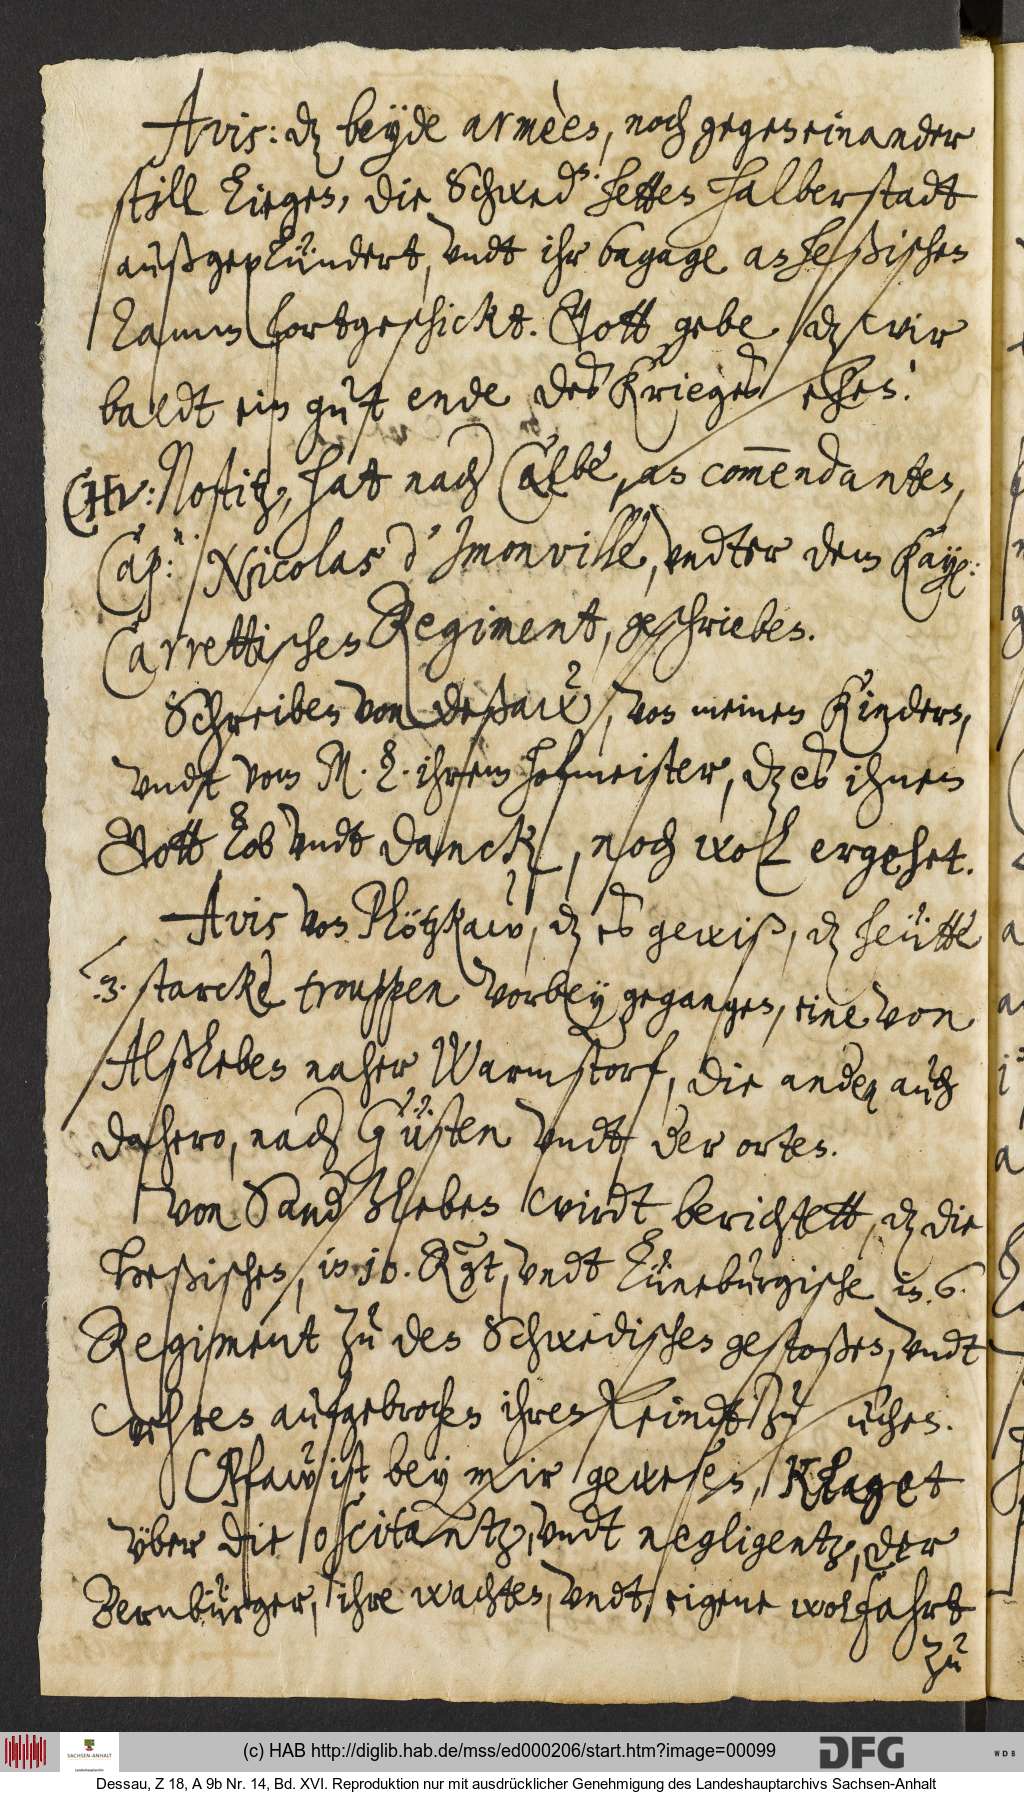 Avis: dz beyde armèen, noch gegeneinander
still liegen, die Schwed.n hetten Halberstadt
außgeplündert, vndt ihr bagage an heßischen
hamm fortgeschickt. Gott gebe dz wir
baldt ein gutt ende des Krieges sehen!
CHr: Nostitz, hat nach Calbe, an com̅endanten,
Cap:n Nicolas d'Imonville, vndter dem Kays:
Carrettischen Regiment, geschrieben.
Schreiben von Deßaw, von meinen Kindern,
vndt vom M. L. ihrem hofmeister, dz es ihnen
Gott lob vndt danck, noch wol ergehet.
Avis von Plötzkaw, dz es gewiß, dz heütte
.3. starcke trouppen vorbey gegangen, eine von
Alßleben naher Warmstorf, die ander auch
dahero, nach Güsten vndt der orten.
Von Sandßleben wirdt berichtett, dz die
heßischen, in 10. Rgt, vndt Lüneburgische in .6.
Regiment zu den Schwedischen gestoßen, vndt
wehren aufgebrochen ihren feindt zu suchen.
Pfaw ist bey mir gewesen, Klaget
über die oscitantz, vndt negligentz, der
Bernbürger, ihre wachten, vndt eigene wolfahrt
zu
(c) HAB http://diglib.hab.de/mss/ed000206/start.htm?image=00099
SACHSEN-ANHALT
Landeshauptarchiv
DFG
WDB
Dessau, Z 18, A 9b Nr. 14, Bd. XVI. Reproduktion nur mit ausdrücklicher Genehmigung des Landeshauptarchivs Sachsen-Anhalt